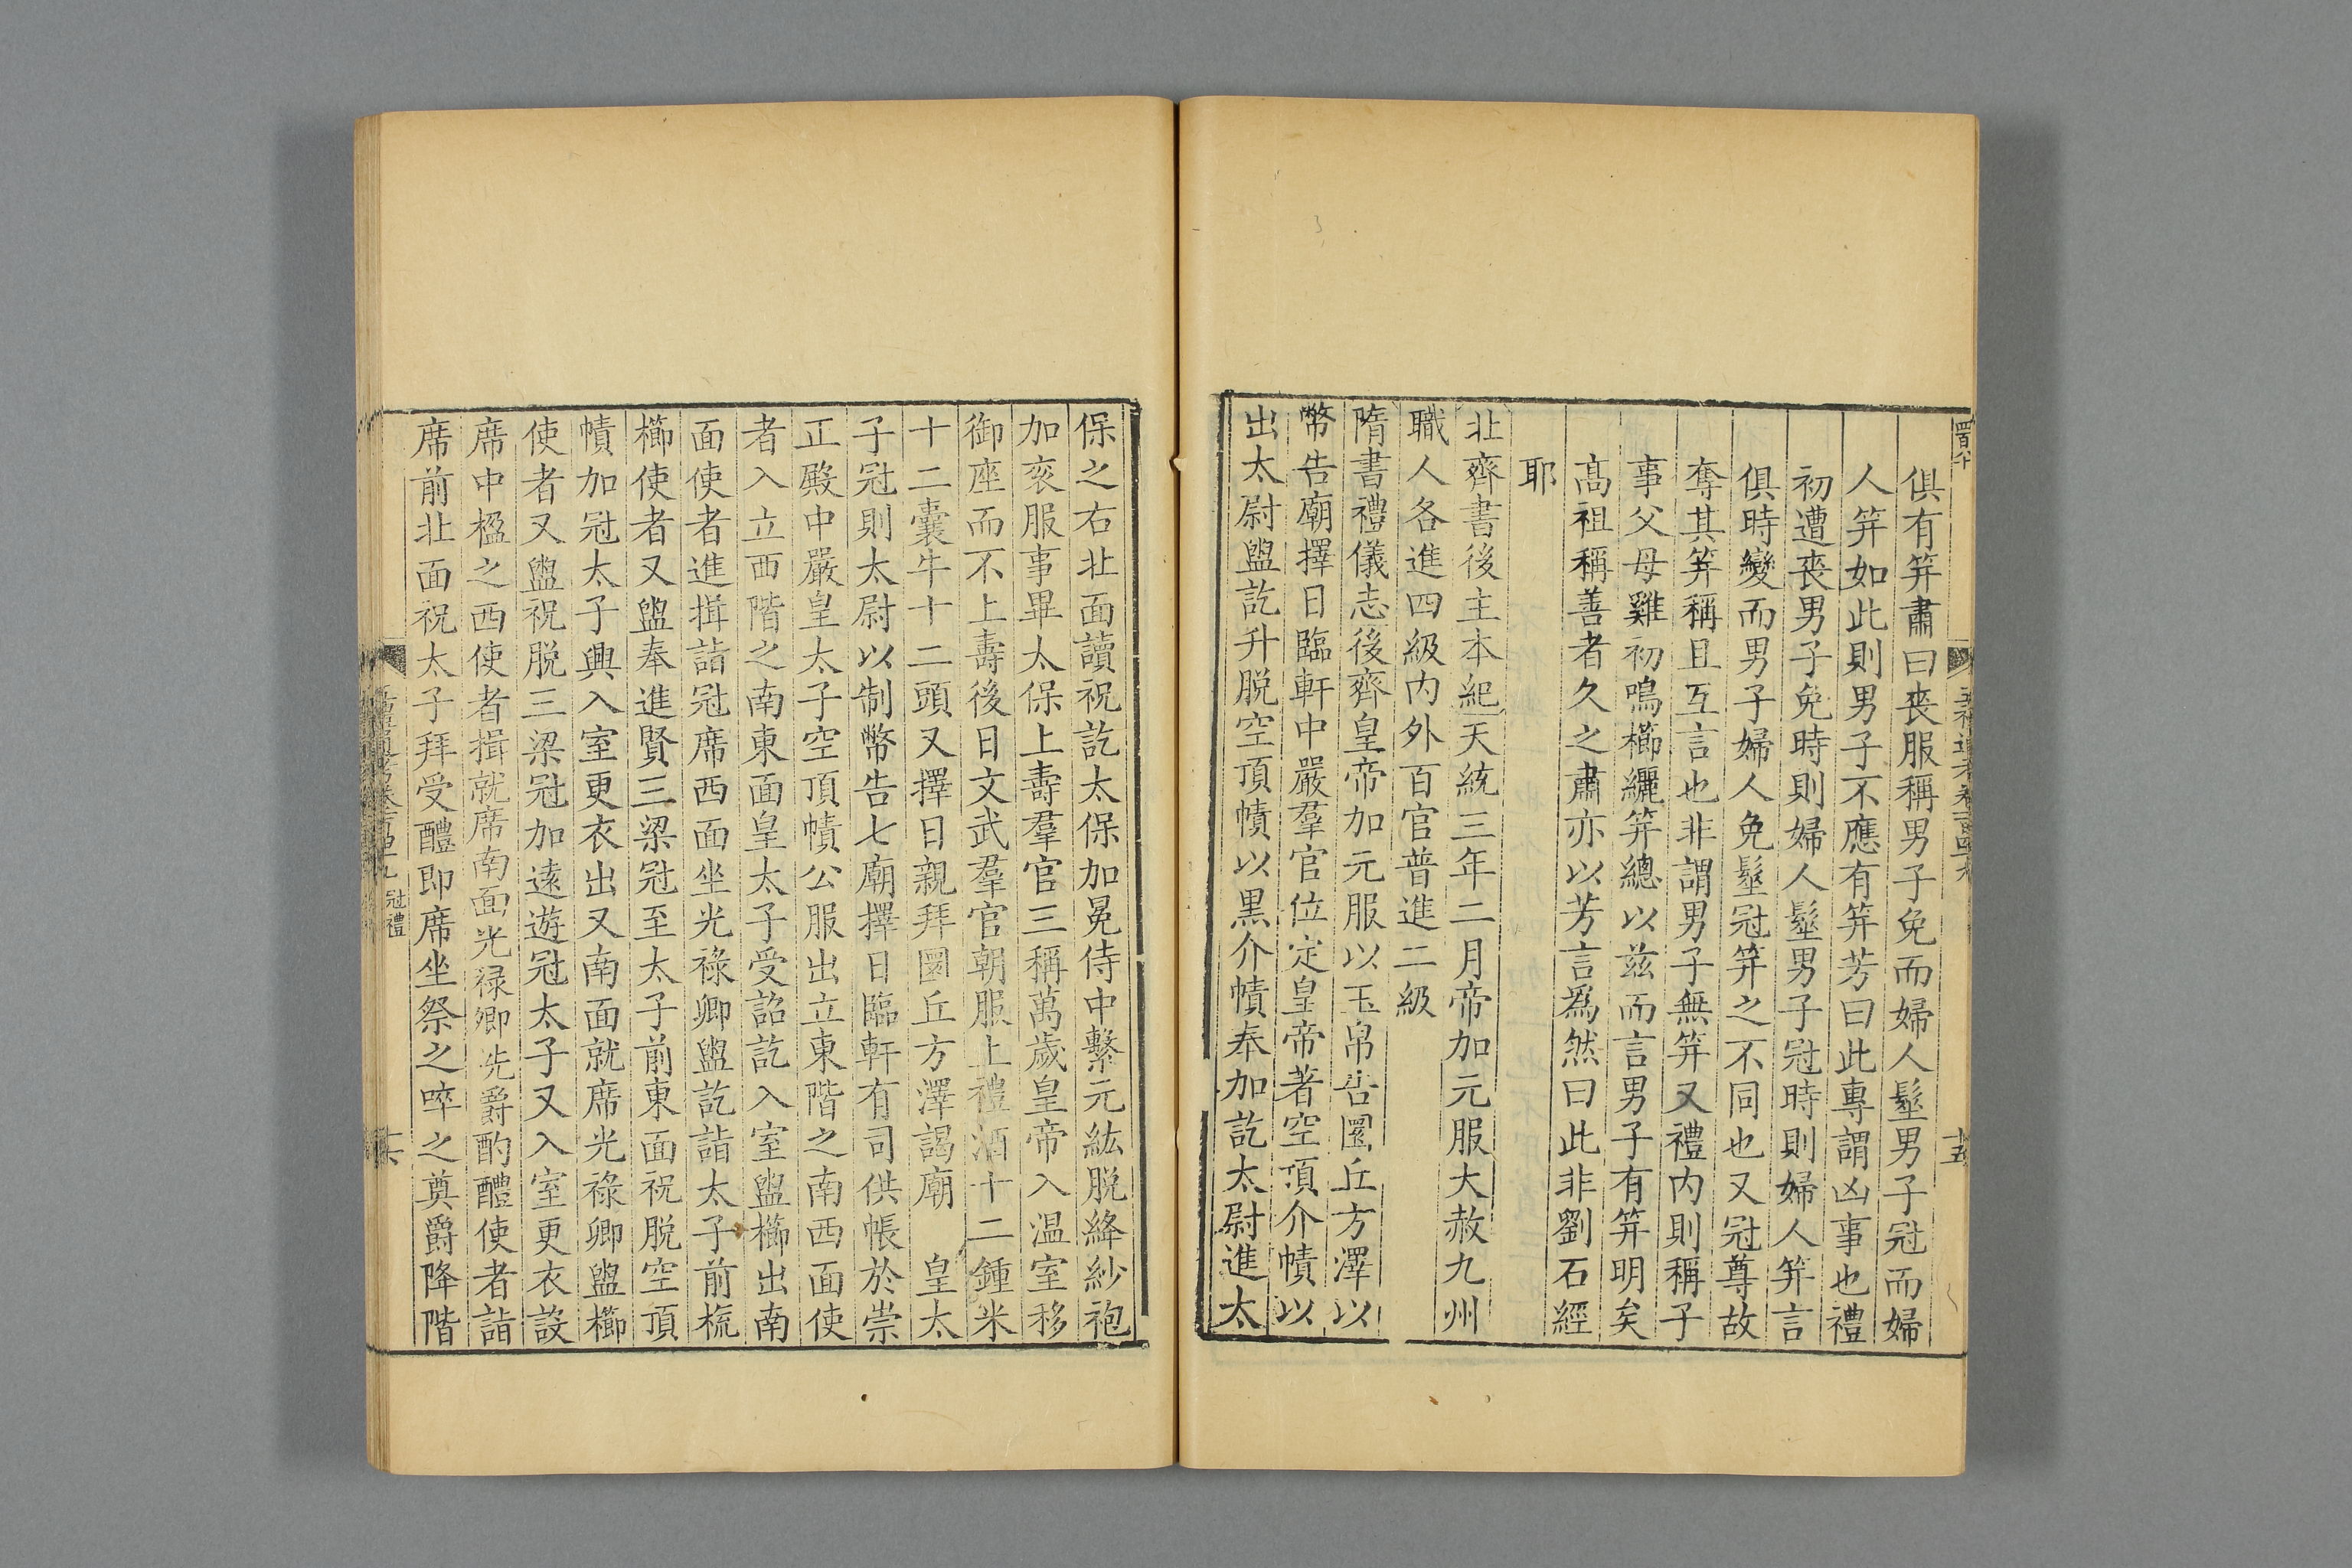 俱有笄肅曰喪服稱男子免而婦人髽男子冠而婦
人笄如此則男子不應有笄芳曰此專謂凶事也禮
初遭喪男子免時則婦人髽男子冠時則婦人笄言
俱時變而男子婦人免髽冠笄之不同也又冠尊故
奪其笄稱且互言也非謂男子無笄又禮內則稱子
事父母雞初鳴櫛纚笄總以茲而言男子有笄明矣
高祖稱善者久之肅亦以芳言爲然曰此非劉石經
耶
北齊書後主本紀天統三年二月帝加元服大赦九州
職人各進四級內外百官普進二級
隋書禮儀志後齊皇帝加元服以玉帛告圜丘方澤以
幣告廟擇日臨軒中嚴羣官位定皇帝著空頂介幘以
出太尉盥訖升脱空頂幘以黑介幘奉加訖太尉進太
保之右北面讀祝訖太保加冕侍中繫元紘脱絳紗袍
加衮服事畢太保上壽羣官三稱萬歲皇帝入温室移
御座而不上壽後日文武羣官朝服上禮酒十二鍾米
十二囊牛十二頭又擇日親拜圜丘方澤謁廟 皇太
子冠則太尉以制幣告七廟擇日臨軒有司供帳於崇
正殿中嚴皇太子空頂幘公服出立東階之南西面使
者入立西階之南東面皇太子受詔訖入室盥櫛出南
面使者進揖詣冠席西面坐光祿卿盥訖詣太子前梳
櫛使者又盥奉進賢三梁冠至太子前東面祝脱空頂
幘加冠太子興入室更衣出又南面就席光祿卿盥櫛
使者又盥祝脱三梁冠加遠遊冠太子又入室更衣設
席中楹之西使者揖就席南面光禄卿洗爵酌醴使者詣
席前北面祝太子拜受醴即席坐祭之啐之奠爵降階
冠禮